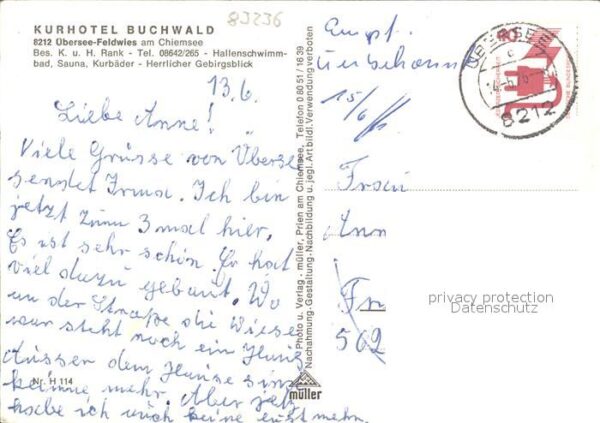 83236
KURHOTEL BUCHWALD
8212 Übersee-Feldwies am Chiemsee
Bes. K. u. H. Rank - Tel. 08642/265 - Hallenschwimm-
bad, Sauna, Kurbäder - Herrlicher Gebirgsblick
13.6.
Liebe Anne!
Viele Grüsse von Übersee
sendet Irma. Ich bin
jetzt zum 3 mal hier.
Es ist sehr schön. Er hat
viel dazu gebaut. Wo
an der Straße die Wiese
war steht noch ein Haus
Aussen dem Hause sin
keine mehr. Aber jetzt
habe ich auch keine
Nr. H 114
Photo u. Verlag müller, Prien am Chiemsee, Telefon 0 80 51 / 18 39
Nachahmung-Gestaltung-Nachbildung u. jegl. Art bildl. Verwendung verboten
müller
Empf.
15/6
ÜBERSEE
8212
Frau
Ann
Fr
562
privacy protection
Datenschutz